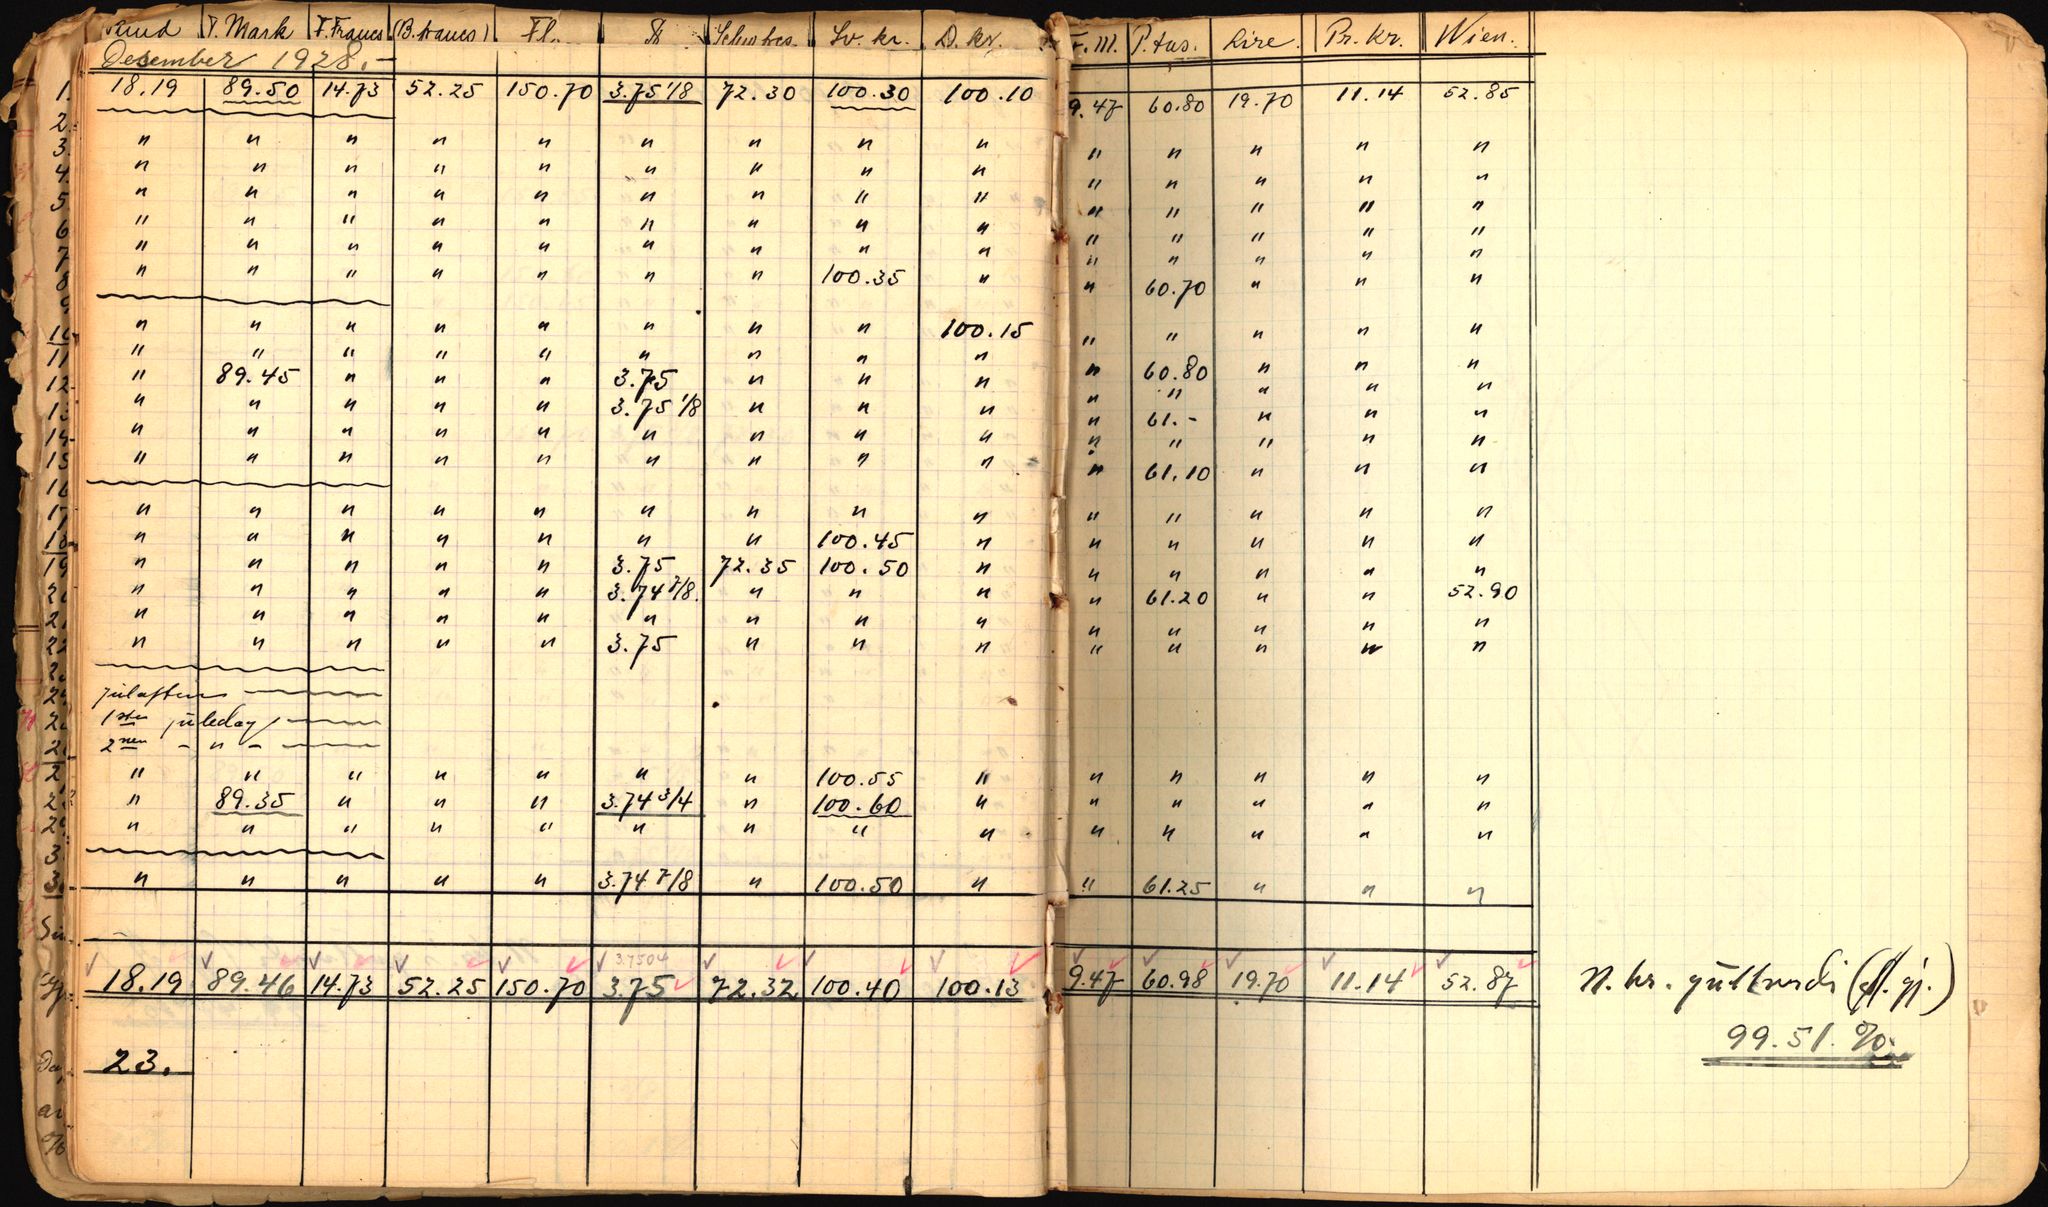 Pund T. Mark F. Francs (B. francs) Fl. $ Schw. frcs. Sv. kr. D. kr. F. m. P.tas. Lire. Pr. Kr. Wien.
Desember 1928.-
1. 18.19 89.50 14.73 52.25 150.70 3.75 1/8 72.30 100.30 100.10 9.47 60.80 19.70 11.14 52.85
2.
3. " " " " " " " " " " " " " "
4. " " " " " " " " " " " " " "
5. " " " " " " " " " " " " " "
6. " " " " " " " " " " " " " "
7. " " " " " " " " " " " " " "
8. " " " " " " " 100.35 " " 60.70 " " "
9.
10 " " " " " " " " 100.15 " " " " "
11 " " " " " " " " " " 60.80 " " "
12. " 89.45 " " " 3.75 " " " " " " " "
13 " " " " " 3.75 1/8 " " " " 61.- " " "
14 " " " " " " " " " " " " " "
15 " " " " " " " " " " 61.10 " " "
16
17 " " " " " " " " " " " " " "
18 " " " " " " " 100.45 " " " " " "
19 " " " " " 3.75 72.35 100.50 " " " " " "
2 " " " " " 3.74 7/8. " " " " 61.20 " " 52.90
2 " " " " " " " " " " " " " "
2 " " " " " 3.75 " " " " " " " "
2
2 Julaften
2 1ste juledag
2 2nen - " -
2 " " " " " " " 100.55 " " " " " "
2 " 89.35 " " " 3.74 3/4 " 100.60 " " " " " "
2 " " " " " " " " " " " " " "
3
3 " " " " " 3.74 7/8 " 100.50 " " 61.25 " " "
3.7504
18.19 89.46 14.73 52.25 150.70 3.75 72.32 100.40 100.13 9.47 60.98 19.70 11.14 52.87
N. kr. gullverdi (pr. gj.)
99.51.%
23.